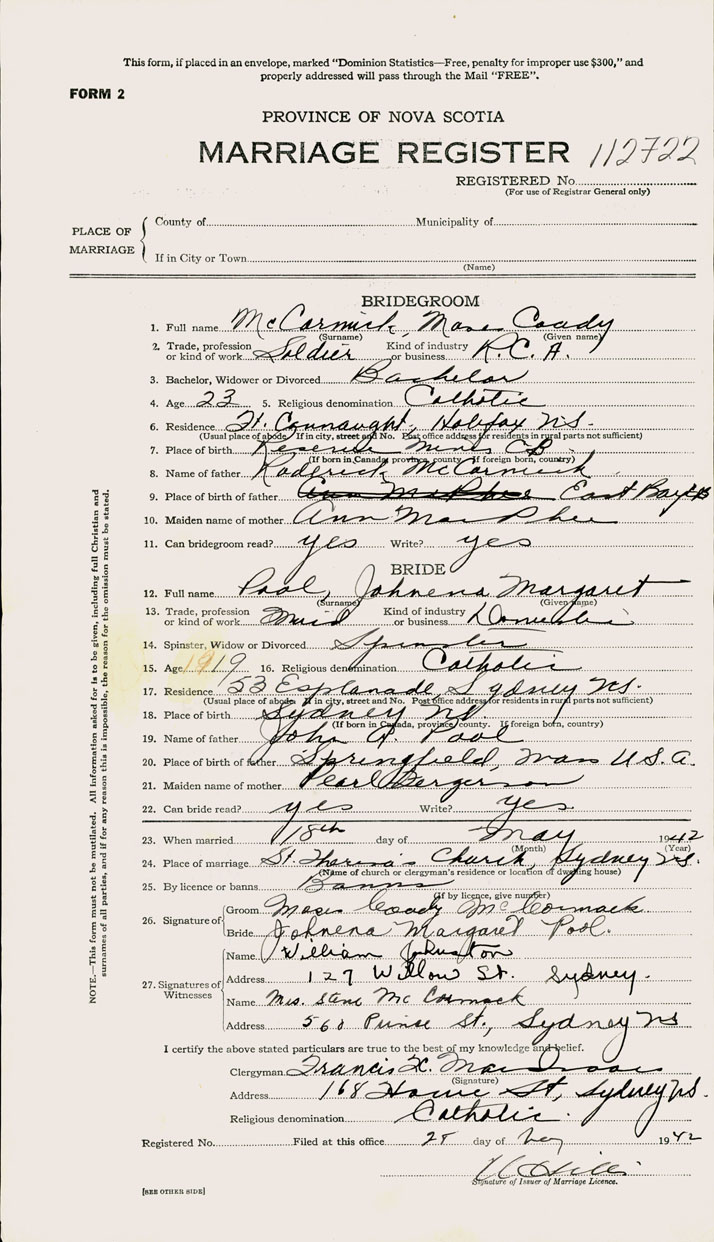 This form, if placed in an envelope, marked "Dominion Statistics—Free, penalty for improper use $300," and
properly addressed will pass through the Mail "FREE".
FORM 2
PROVINCE OF NOVA SCOTIA
MARRIAGE REGISTER 112722
REGISTERED No.
(For use of Registrar General only)
PLACE OF MARRIAGE
County of Municipality of
If in City or Town
(Name)
BRIDEGROOM
1. Full name McCormick, Moses Coady
(Surname) (Given name)
2. Trade, profession or kind of work Soldier Kind of industry or business R.C.A.
3. Bachelor, Widower or Divorced Bachelor
4. Age 23 5. Religious denomination Catholic
6. Residence Ft. Connaught, Halifax N.S.
(Usual place of abode. If in city, street and No. Post office address for residents in rural parts not sufficient)
7. Place of birth Reserve Mines C.B.
(If born in Canada, province, county. If foreign born, country)
8. Name of father Roderick McCormick
9. Place of birth of father Ann MacPhee East Bay C.B
10. Maiden name of mother Ann MacPhee
11. Can bridegroom read? yes Write? yes
BRIDE
12. Full name Pool, Johnena Margaret
(Surname) (Given name)
13. Trade, profession or kind of work Maid Kind of industry or business Domestic
14. Spinster, Widow or Divorced Spinster
15. Age 19 19 16. Religious denomination Catholic
17. Residence 53 Esplanade, Sydney N.S.
(Usual place of abode. If in city, street and No. Post office address for residents in rural parts not sufficient)
18. Place of birth Sydney N.S.
(If born in Canada, province, county. If foreign born, country)
19. Name of father John A. Pool
20. Place of birth of father Springfield, Mass U.S.A.
21. Maiden name of mother Pearl Bergerson
22. Can bride read? yes Write? yes
23. When married 18th day of May 1942
(Month) (Year)
24. Place of marriage St. Theresa's Church, Sydney N.S.
(Name of church or clergyman's residence or location of dwelling house)
25. By licence or banns Banns
(If by licence, give number)
26. Signature of
Groom Moses Coady McCormack
Bride Johnena Margaret Pool.
27. Signatures of Witnesses
Name William Johnston
Address 127 Willow St. Sydney.
Name Mrs. Stane McCormack
Address 560 Prince St., Sydney N.S
I certify the above stated particulars are true to the best of my knowledge and belief.
Clergyman Francis X. MacIsaac
(Signature)
Address 168 Howe St, Sydney N.S.
Religious denomination Catholic.
Registered No. Filed at this office 28 day of May 1942
Signature of Issuer of Marriage Licence.
[SEE OTHER SIDE]
NOTE.—This form must not be mutilated. All information asked for is to be given, including full Christian and
surnames of all parties, and if for any reason this is impossible, the reason for the omission must be stated.